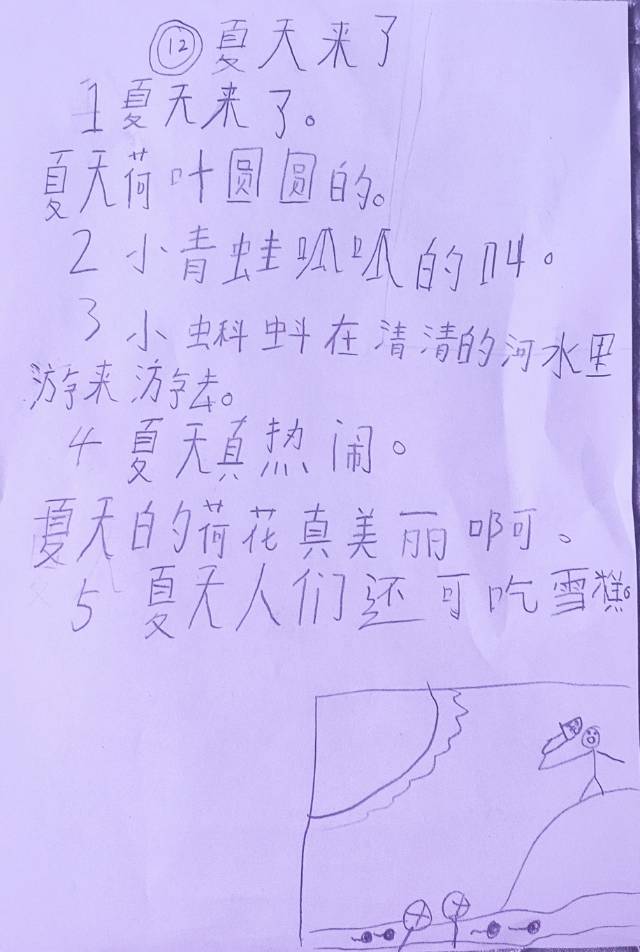 ⑫夏天来了
1夏天来了。
夏天荷叶圆圆的。
2小青蛙呱呱的叫。
3小蝌蚪在清清的河水里
游来游去。
4夏天真热闹。
夏天的荷花真美丽啊。
5夏天人们还可吃雪糕。